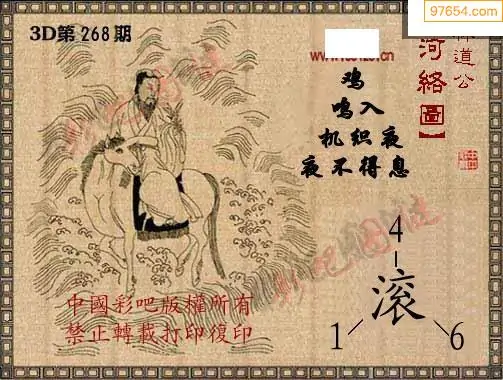 97654.com
3D第268期
神道公
河络圖】
鸡
鸣入
机织夜
夜不得息
4
滚
1 6
中國彩吧版權所有
禁止轉載打印復印